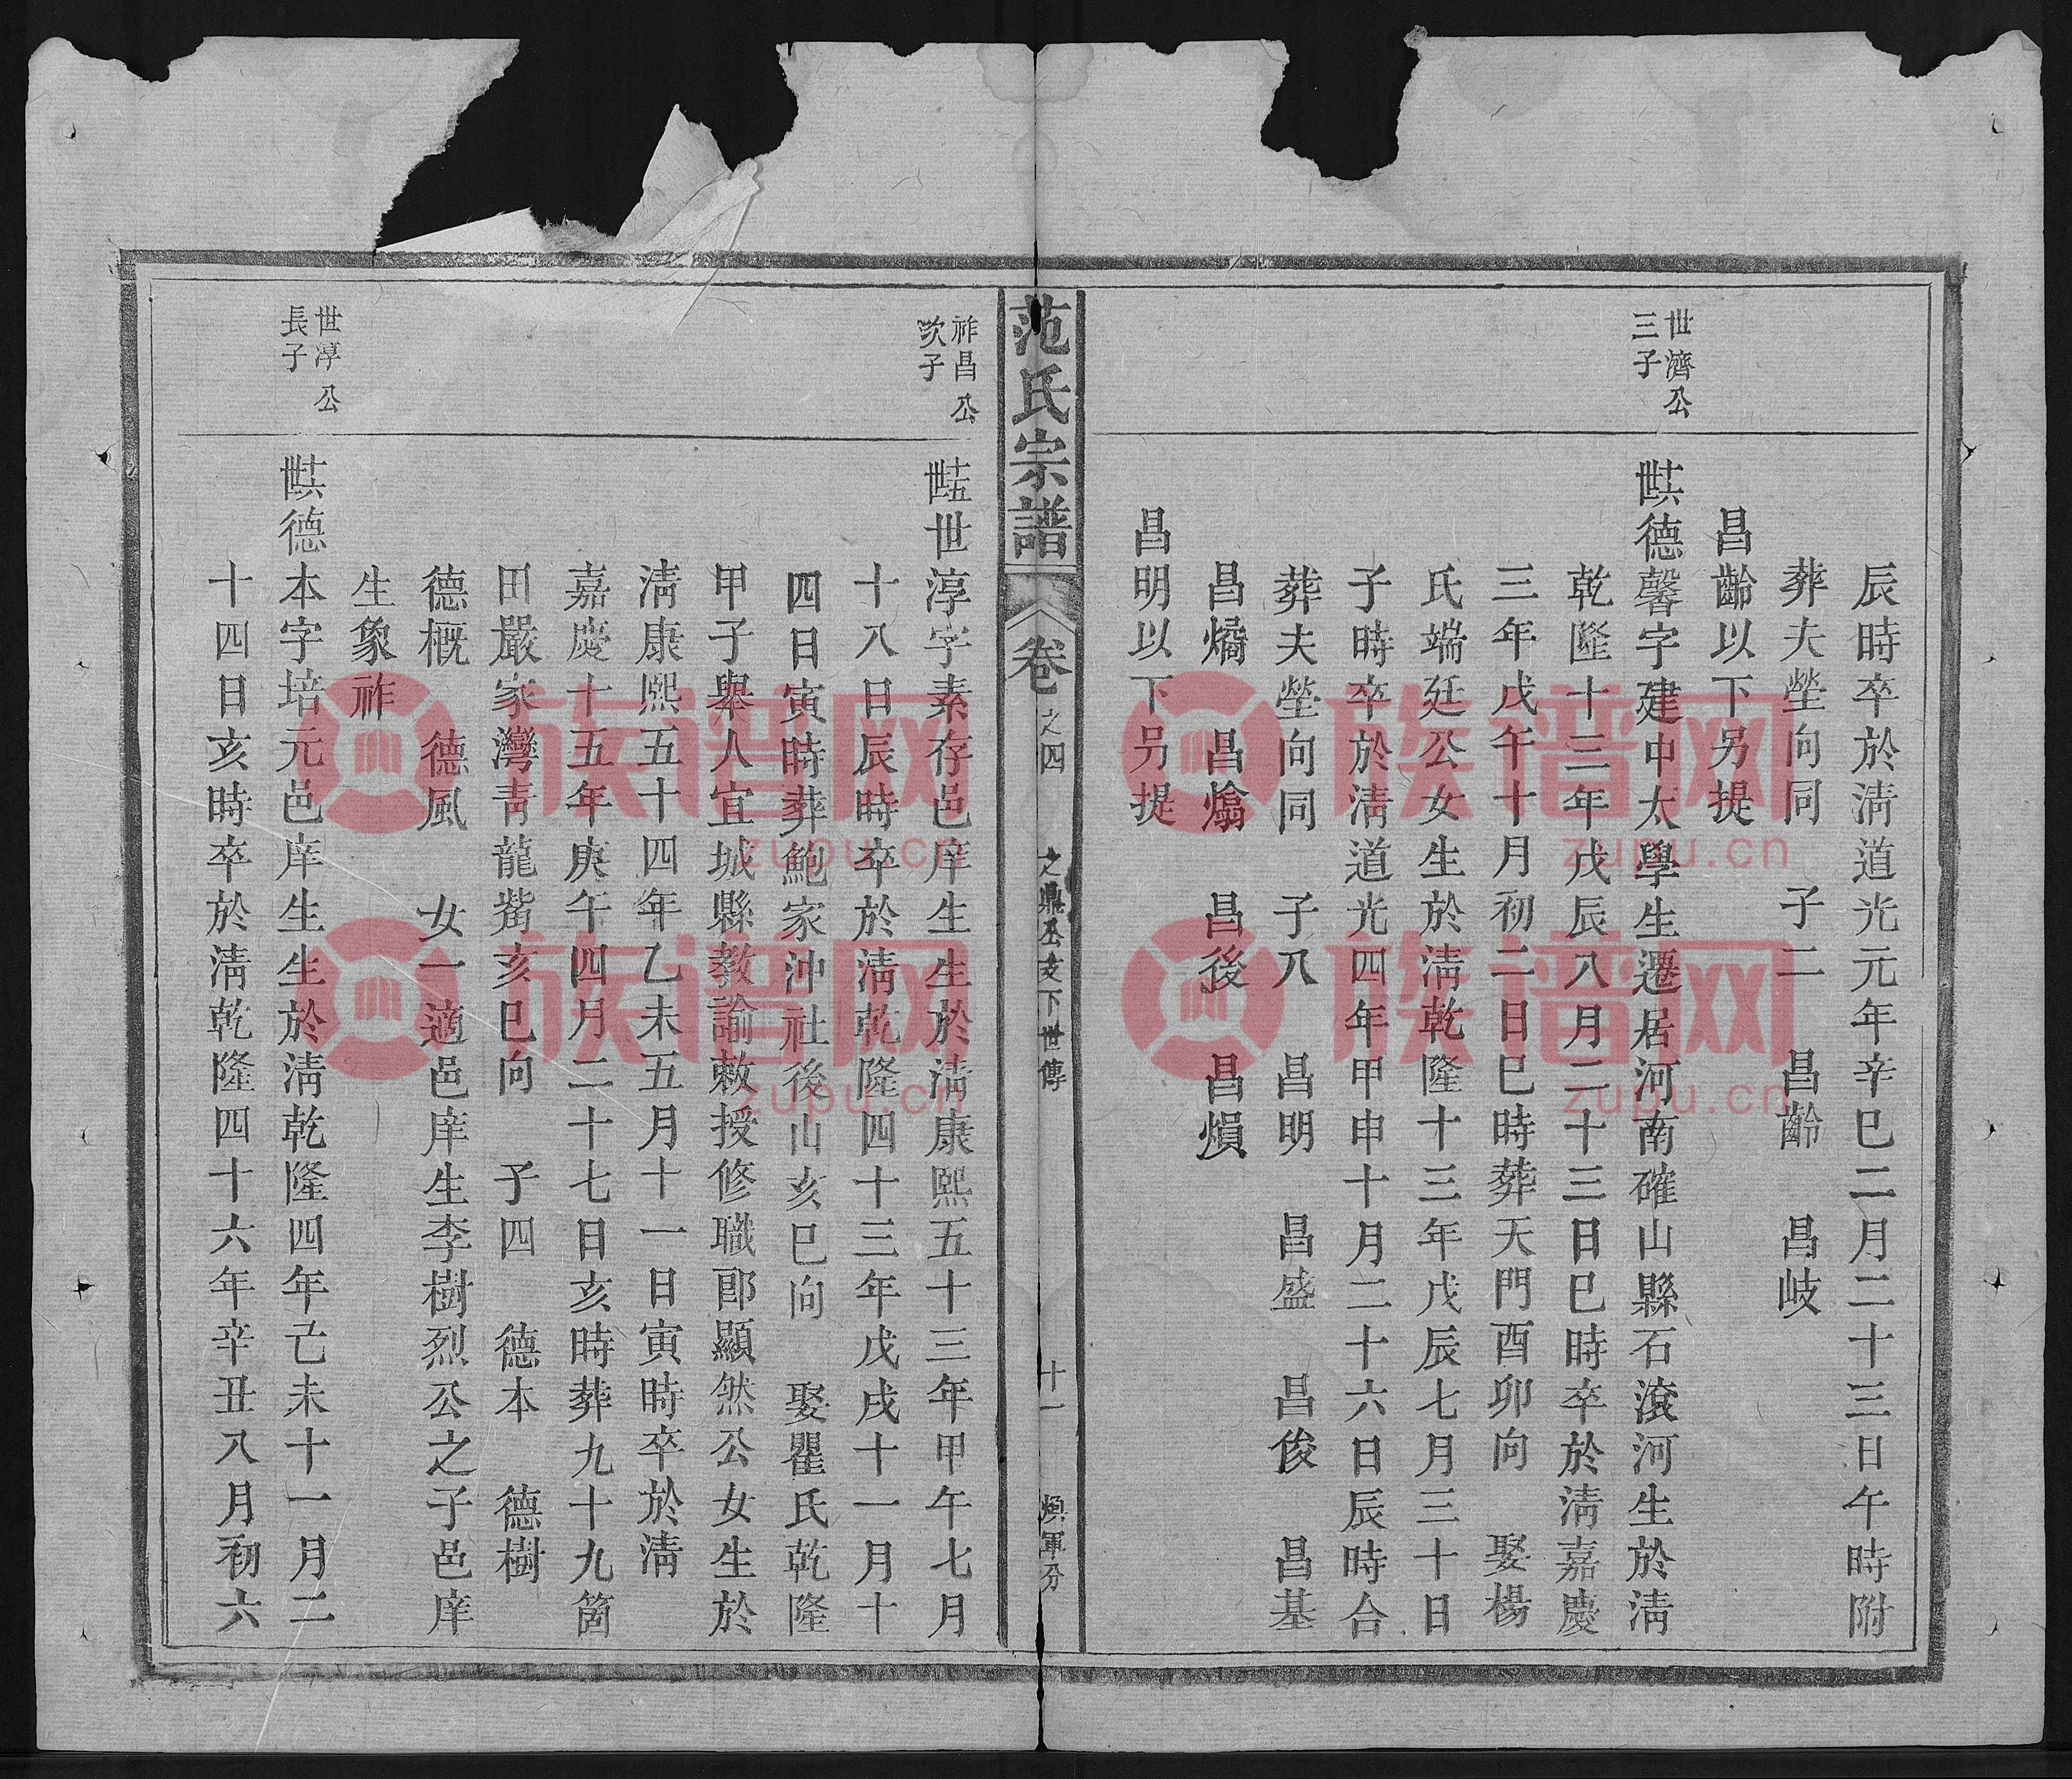 辰時卒於淸道光元年辛巳二月二十三日午時附
葬夫塋向同　子二　昌齡　昌岐
昌齡以下另提
世濟公
三子
世十六德馨字建中太學生遷居河南確山縣石滾河生於淸
乾隆十三年戊辰八月二十三日巳時卒於淸嘉慶
三年戊午十月初二日巳時葬天門酉卯向　娶楊
氏端廷公女生於淸乾隆十三年戊辰七月三十日
子時卒於淸道光四年甲申十月二十六日辰時合
葬夫塋向同　子八　昌明　昌盛　昌俊　昌基
昌燏　昌熻　昌後　昌熉
昌明以下另提
范氏宗譜　卷之四　之鼎丕支下世傳　十一　煥軍分
祚昌公
次子
世十五世淳字素存邑庠生生於淸康熙五十三年甲午七月
十八日辰時卒於淸乾隆四十三年戊戌十一月十
四日寅時葬鮑家沖社後山亥巳向　娶瞿氏乾隆
甲子舉人宜城縣敎諭敕授修職郎顯然公女生於
淸康熙五十四年乙未五月十一日寅時卒於淸
嘉慶十五年庚午四月二十七日亥時葬九十九箇
田嚴家灣靑龍觜亥巳向　子四　德本　德樹
德概　德風　女一適邑庠生李樹烈公之子邑庠
生象祚
世淳公
長子
世十六德本字培元邑庠生生於淸乾隆四年己未十一月二
十四日亥時卒於淸乾隆四十六年辛丑八月初六
族谱网
zupu.cn
族谱网
zupu.cn
族谱网
zupu.cn
族谱网
zupu.cn